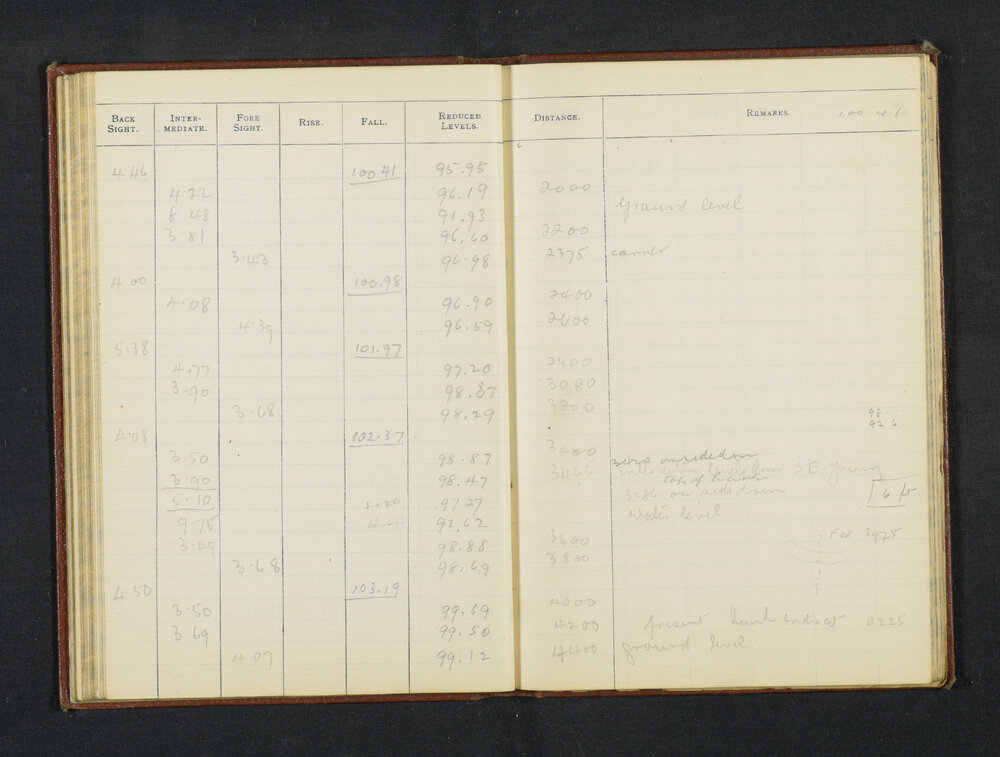 BACK SIGHT. INTER-MEDIATE. FORE SIGHT. RISE. FALL. REDUCED LEVELS. DISTANCE. REMARKS. 100.41
4.46 100.41 95.95
4.22 96.19 2000
8.48 91.93 Ground level
3.81 96.60 2200
3.43 96.98 2375 corner
4.00 100.98
4.08 96.90 2400
4.39 96.59 2600
5.38 101.97
4.77 97.20 2800
3.90 98.07 3000
3.68 98.29
4.08 102.37
98.
92.6
3.50 98.87 3400
3.90 98.47 3465 S.E. Young
5.10 97.27 3286 on side drain 6 ft
9.75 92.62 water level
3.49 98.88 3600 For 3925
3.68 98.69 3800
4.50 103.19
3.50 99.69 4000
3.69 99.50 4200 present bank ends at 4225
4.07 99.12 4400 ground level